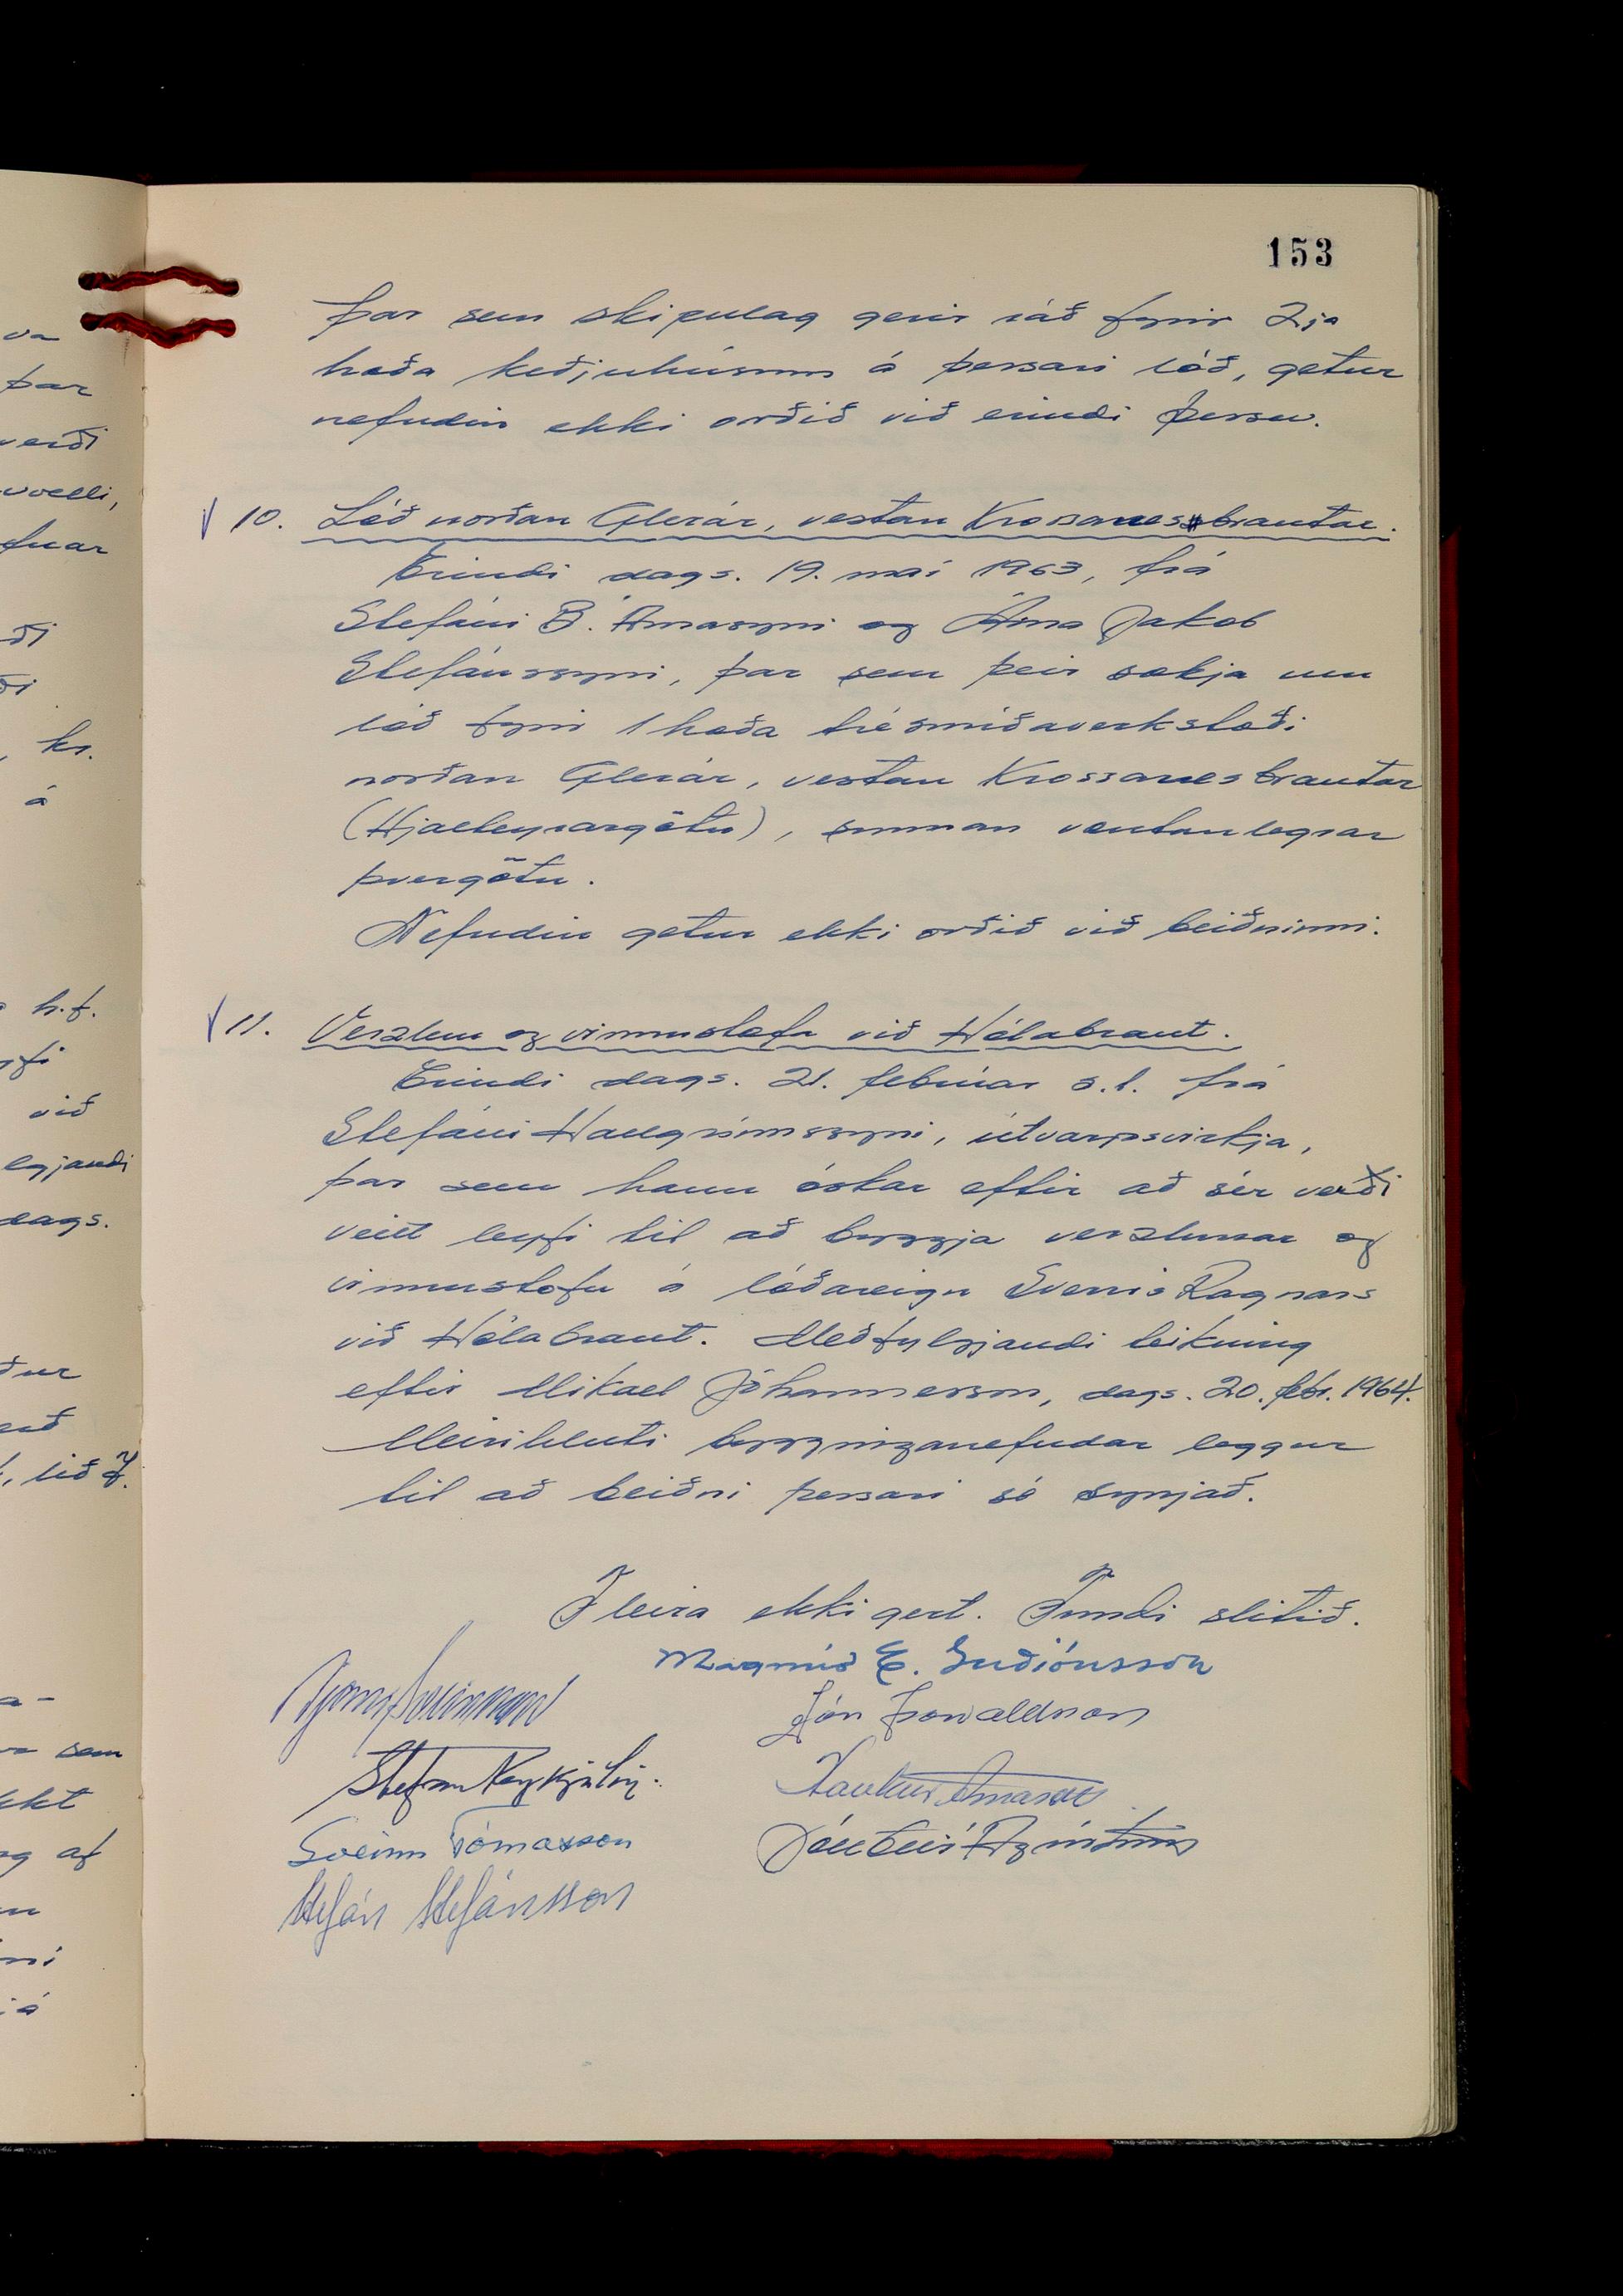 153
va
þar
verði
velli,
fnar
ði
ði
, kr.
á
h.f.
yfi
við
lgjandi
dags.
ður
, lið 7.
a-
sem
kkt
g af
þar sem skipulag gerir ráð fyrir 2ja
hæða keðjuhúsum á þessari lóð, getur
nefndin ekki orðið við erindi þessu.
√ 10. Lóð norðan Glerár, vestan Krossanesbrautar.
Erindi dags. 19. maí 1963, frá
Stefáni B. Árnasyni og Árna Jakob
Stefánssyni, þar sem þeir sækja um
lóð fyrir 1 hæða trésmíðaverkstæði
norðan Glerár, vestan Krossanesbrautar
(Hjalteyrargötu), sunnan væntanlegrar
þvergötu.
Nefndin getur ekki orðið við beiðninni.
√ 11. Verzlun og vinnustofa við Hólabraut.
Erindi dags. 21. febrúar s.l. frá
Stefáni Hallgrímssyni, útvarpsvirkja,
þar sem hann óskar eftir að sér verði
veitt leyfi til að byggja verzlunar og
vinnustofu á lóðareign Sverris Ragnars
við Hólabraut. Meðfylgjandi teikning
eftir Mikael Jóhannesson, dags. 20. febr. 1964.
Meirihluti byggninganefndar leggur
til að beiðni þessari sé synjað.
Fleira ekki gert. Fundi slitið.
Magnús E. Guðjónsson
Jón Þorvaldsson
Stefán Reykjalín.
Haukur Árnason
Sveinn Tómasson
Jón Geir Ágústsson
Stefán Stefánsson